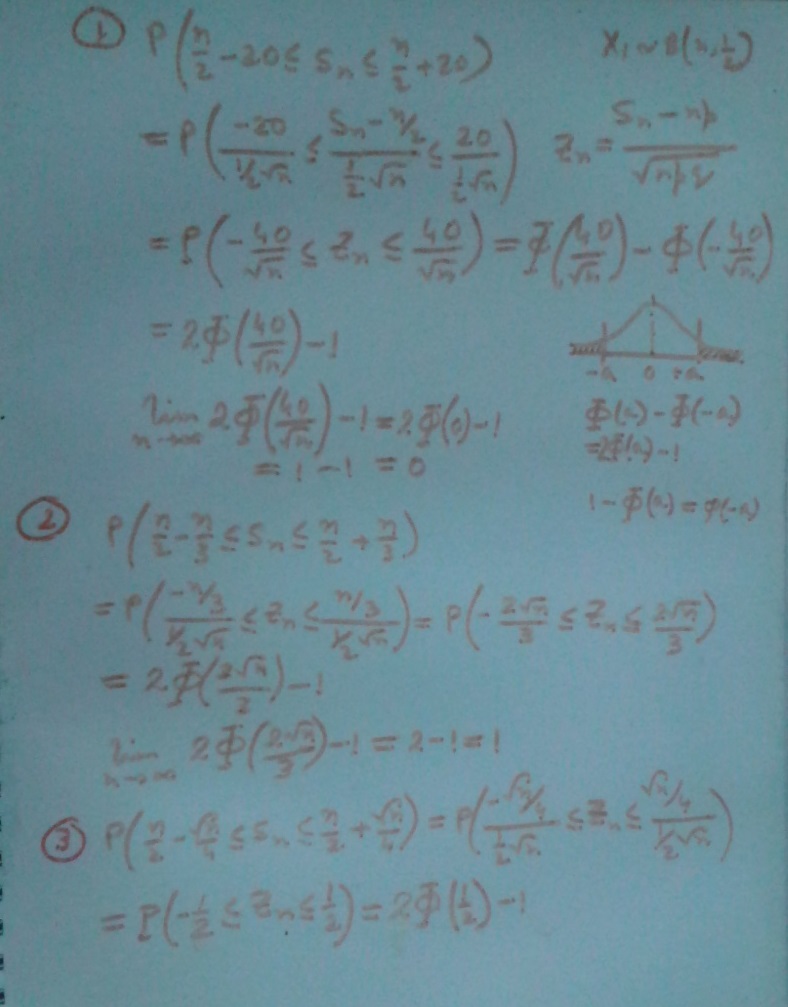 ① P(n/2 - 20 ≤ Sn ≤ n/2 + 20)   X₁ ~ B(n, 1/2)
= P(-20/(½√n) ≤ (Sn - n/2)/(½√n) ≤ 20/(½√n))   Zn = (Sn - np)/√(npq)
= P(-40/√n ≤ Zn ≤ 40/√n) = Φ(40/√n) - Φ(-40/√n)
= 2Φ(40/√n) - 1
-a 0 +a
lim n→∞ 2Φ(40/√n) - 1 = 2Φ(0) - 1
= 1 - 1 = 0
Φ(a) - Φ(-a)
= 2Φ(a) - 1
1 - Φ(a) = φ(-a)
② P(n/2 - n/3 ≤ Sn ≤ n/2 + n/3)
= P((-n/3)/(½√n) ≤ Zn ≤ (n/3)/(½√n)) = P(-2√n/3 ≤ Zn ≤ 2√n/3)
= 2Φ(2√n/3) - 1
lim n→∞ 2Φ(2√n/3) - 1 = 2 - 1 = 1
③ P(n/2 - √n/4 ≤ Sn ≤ n/2 + √n/4) = P((-√n/4)/(½√n) ≤ Zn ≤ (√n/4)/(½√n))
= P(-1/2 ≤ Zn ≤ 1/2) = 2Φ(1/2) - 1